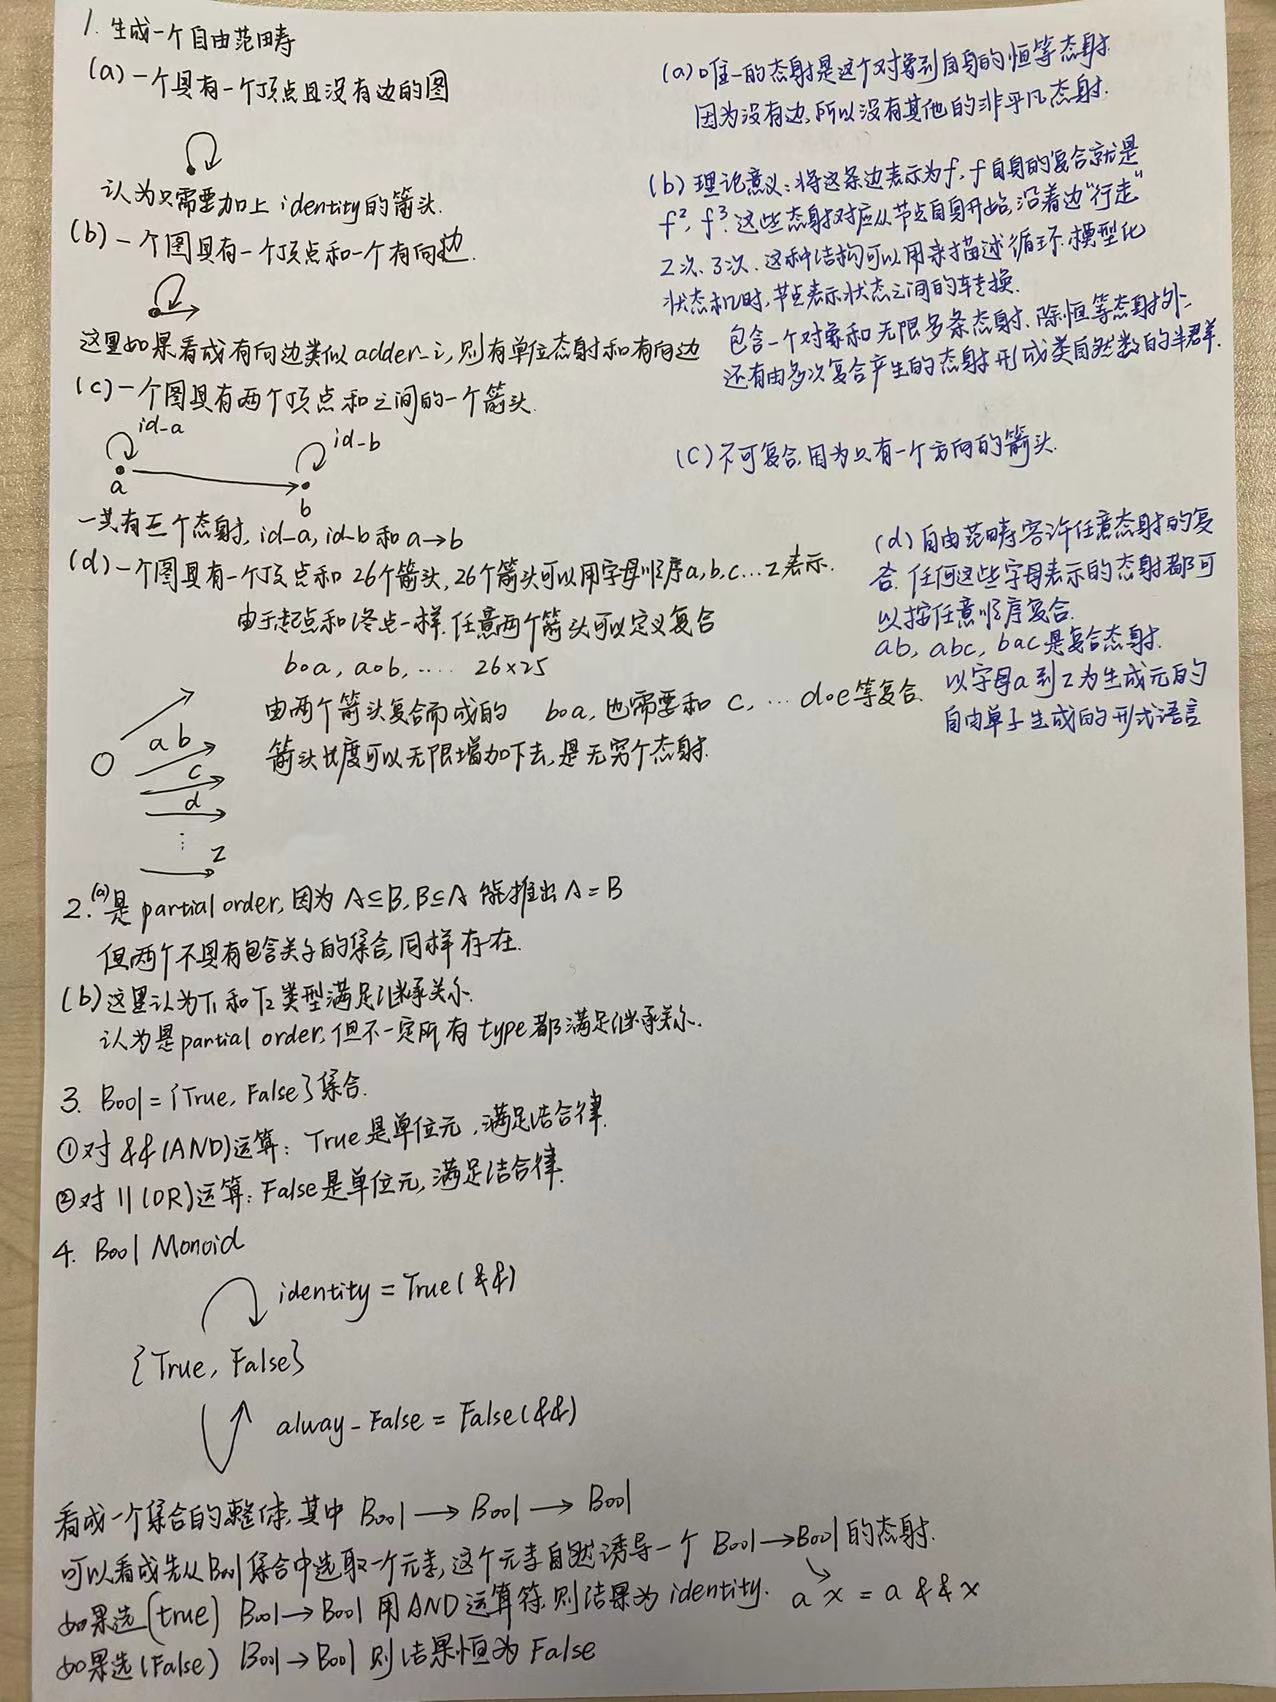 1. 生成一个自由范畴
(a) 一个具有一个顶点且没有边的图
认为只需要加上 identity的箭头.
(b) 一个图具有一个顶点和一个有向边.
这里如果看成有向边类似 adder_i, 则有单位态射和有向边
(c) 一个图具有两个顶点和之间的一个箭头.
id-a
id-b
a
b
一共有三个态射, id_a, id_b 和 a→b
(d) 一个图具有一个顶点和 26个箭头, 26个箭头可以用字母顺序a, b, c... z表示.
由于起点和终点一样. 任意两个箭头可以定义复合
b∘a, a∘b, .... 26×25
由两个箭头复合而成的 b∘a, 也需要和 c, ... d∘e等复合.
箭头长度可以无限增加下去, 是无穷个态射.
a b
c
d
⋮
z
(a) 唯一的态射是这个对象到自身的恒等态射.
因为没有边, 所以没有其他的非平凡态射.
(b) 理论意义: 将这条边表示为f, f自身的复合就是
f², f³. 这些态射对应从节点自身开始, 沿着边"行走"
2次、3次. 这种结构可以用来描述循环. 模型化
状态机时, 节点表示状态之间的转换.
包含一个对象和无限多条态射. 除恒等态射外,
还有由多次复合产生的态射形成类自然数的半群.
(c) 不可复合, 因为只有一个方向的箭头.
(d) 自由范畴容许任意态射的复
合. 任何这些字母表示的态射都可
以按任意顺序复合.
ab, abc, bac是复合态射.
以字母a到z为生成元的
自由单子生成的形式语言
2. (a) 是 partial order, 因为 A⊆B, B⊆A 能推出 A = B
但两个不具有包含关系的集合, 同样存在.
(b) 这里认为T₁ 和 T₂ 类型满足继承关系.
认为是partial order, 但不一定所有 type都满足继承关系.
3. Bool = {True, False}集合.
①对 && (AND)运算: True是单位元, 满足结合律.
②对 || (OR)运算: False是单位元, 满足结合律.
4. Bool Monoid
identity = True (&&)
{True, False}
alway_False = False (&&)
看成一个集合的整体, 其中 Bool → Bool → Bool
可以看成先从Bool集合中选取一个元素, 这个元素自然诱导一个 Bool→Bool 的态射.
如果选 (true) Bool→Bool 用AND运算符, 则结果为 identity. a x = a && x
如果选 (False) Bool→Bool 则结果恒为 False